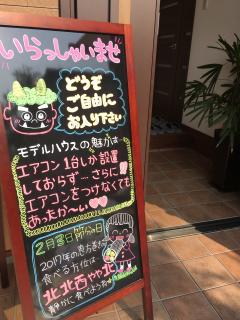 いらっしゃいませ
どうぞ
ご自由に
お入り下さい
モデルハウスの魅力は…
エアコン1台しか設置
しておらず…さらに
エアコンをつけなくても
あったか〜い
2月3日節分の日
2017年の恵方巻き
食べる方位は
北北西やや北
静かに食べようね